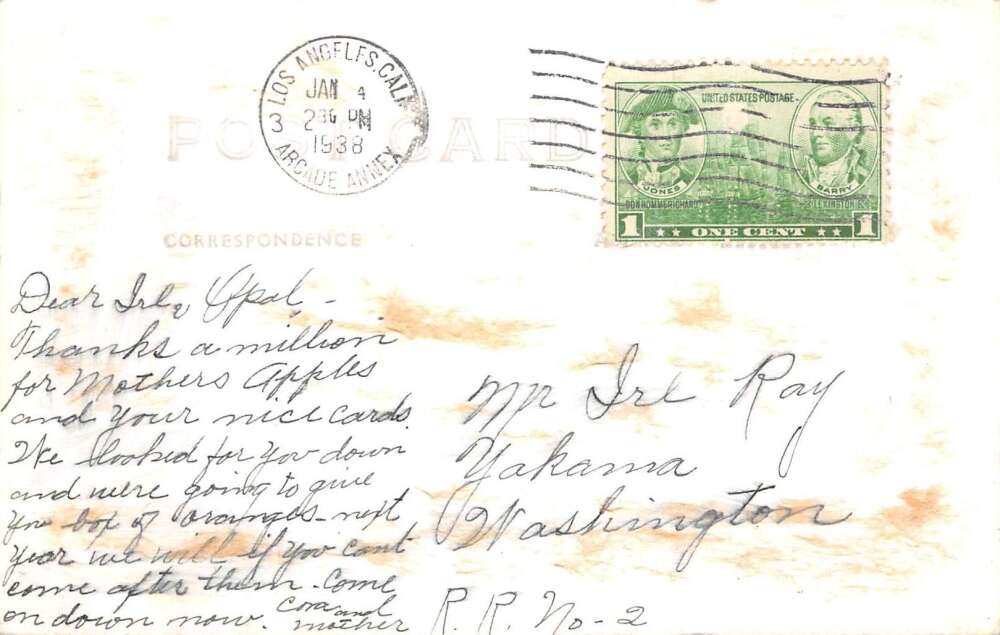 LOS ANGELES, CALIF.
JAN 4
2 30 PM
3
1938
ARCADE ANNEX
POST CARD
UNITED STATES POSTAGE
JONES
BARRY
BON HOMME RICHARD
LEXINGTON
1 ONE CENT 1
CORRESPONDENCE
Dear Irl & Opal -
Thanks a million
for Mothers Apples
and your nice cards.
We looked for You down
and were going to give
you box of oranges - next
year we will if you cant
come after them - Come
on down now. Cora and
mother
Mr Irl Ray
Yakama
Washington
R. R. No - 2